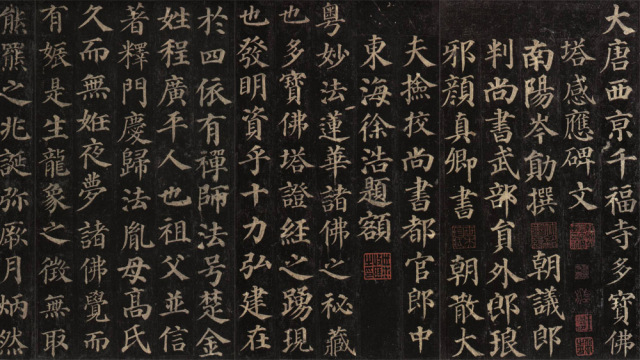 大唐西京千福寺多寶佛
塔感應碑文
南陽岑勛撰 朝議郎
判尚書武部員外郎琅
邪顏真卿書 朝散大
夫撿校尚書都官郎中
東海徐浩題額
粵妙法蓮華諸佛之秘藏
也多寶佛塔證經之踴現
也發明資乎十力弘建在
於四依有禪師法号楚金
姓程廣平人也祖父並信
著釋門慶歸法胤母高氏
久而無姙夜夢諸佛覺而
有娠是生龍象之徵無取
熊羆之兆誕弥厥月炳然